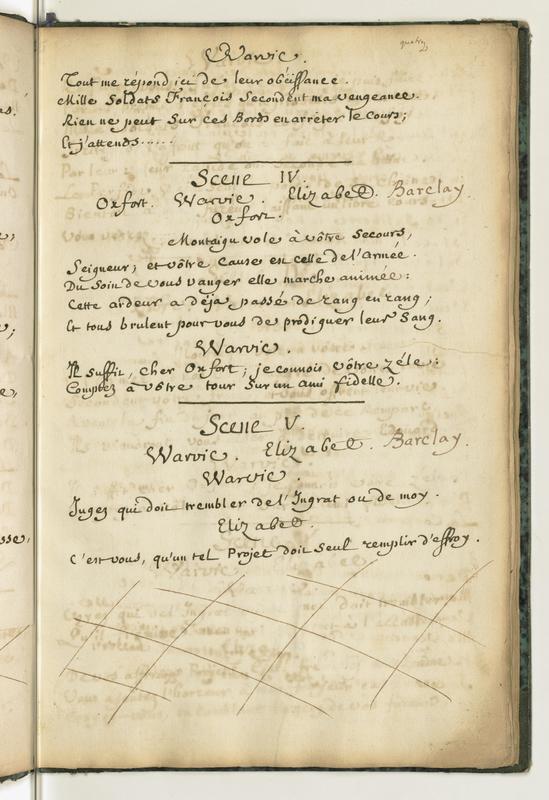 Warvic.
Tout me répond ici de leur obéissance.
Mille Soldats François Secondent ma vengeance.
Rien ne peut Sur ces Bords en arrêter le Cours;
Et j'attends......
Scene IV.
Oxfort. Warvic. Elizabeth. Barclay.
Oxfort.
Montaigu vole à vôtre Secours,
Seigneur; et vôtre Cause est celle de l'armée.
Du Soin de vous vanger elle marche animée:
Cette ardeur a déja passé de rang en rang;
Et tous brulent pour vous de prodiguer leur Sang.
Warvic.
Il suffit, cher Oxfort; je connois vôtre zéle:
Comptez à vôtre tour Sur un ami fidelle.
Scene V.
Warvic. Elizabeth. Barclay.
Warvic.
Jugez qui doit trembler de l'Ingrat ou de moy.
Elizabeth.
C'est vous, qu'un tel Projet doit Seul remplir d'effroy.